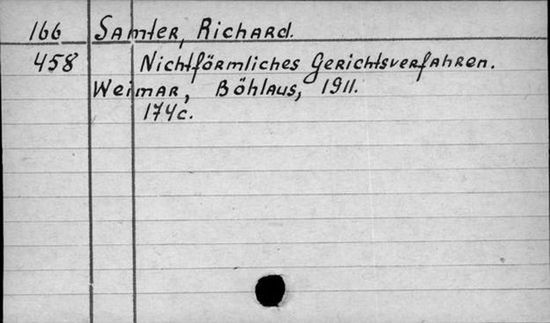 166 Samter, Richard.
458 Nichtförmliches Gerichtsverfahren.
Weimar, Böhlaus, 1911.
174c.